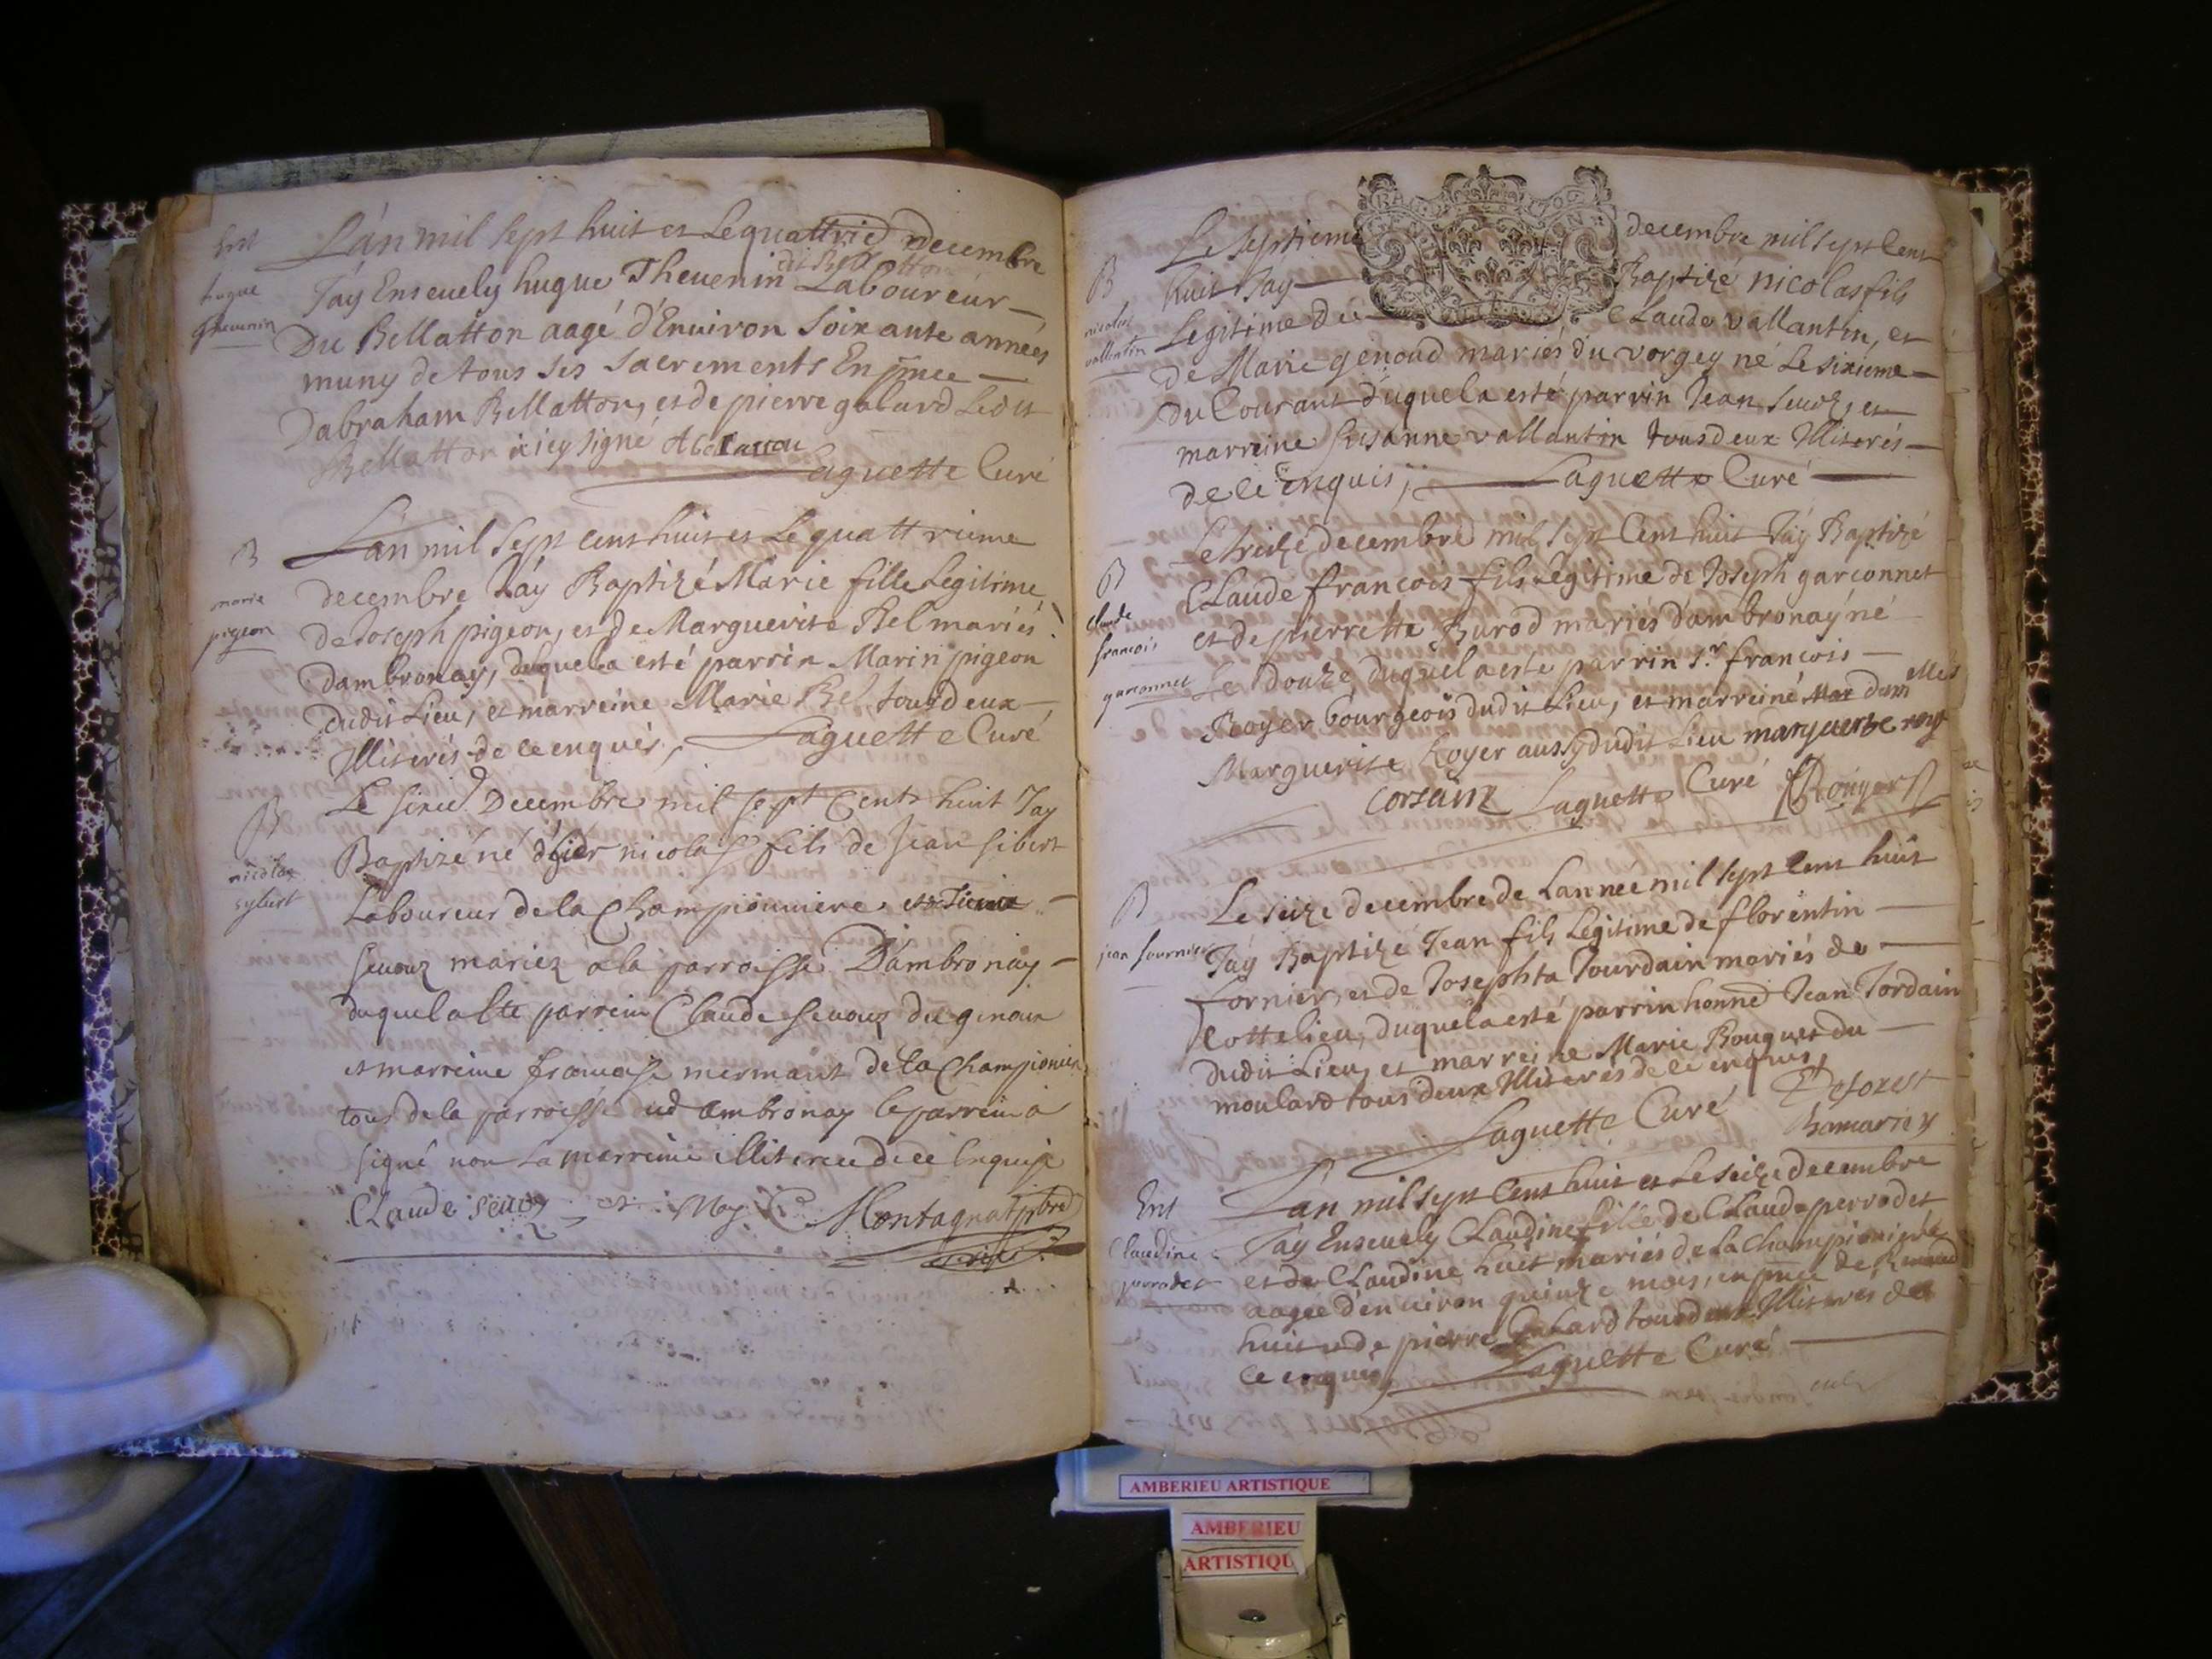 Ent
hugue
thevenin
L'an mil sept huit et Le quattrie decembre
Jay Enseuely hugue Thevenin Laboureur
Du Bellatton aagé d'Enuiron Soixante années
muny de tous ses sacrements En pnce
Dabraham Bellatton, et de pierre galard Ledit
Bellatton icy signé
Laguette Curé
B
marie
pigeon
L'an mil sept cent huit et Le quattrieme
decembre Jay Baptizé Marie fille Legitime
de Joseph pigeon, et de Marguerite Bel mariés
dambronay, duquel a esté parrin Marin pigeon
dudit Lieu, et marreine Marie Bel tous deux
Illiterés de ce enquis, Laguette Curé
B
nicolas
sybert
Le sixie Decembre mil sept Cents huit Jay
Baptizé né d'hier nicolas fils de Jean sibert
Laboureur de la Championniere
seuoz mariez a la parroisse D'ambronay
duquel a Ete parrein Claude seuoz du genoux
et marreine francoise mermant de la Championier
tous de la parroisse ud ambronay le parrein a
signé non La marreine illiteree de ce Enquise
Claude seuoz et Moy Montagnat ptre
B
nicolas
vallentin
Le Septieme decembre mil sept Cent
huit Jay Baptizé nicolas fils
Legitime de Claude vallantin, et
de Marie genoud mariés du vorgey né Le sixieme
du Courant duquel a esté parrin Jean seuoz, et
marreine susanne vallantin tous deux Illiterés
de ce enquis; Laguette Curé
B
Claude
francois
garconnet
Le treize decembre mil sept Cent huit Jay Baptizé
Claude francois fils Legitime de Joseph garconnet
et de pierrette Burod mariés d'ambronay né
Le douze duquel a este parrin s.r francois
Royer bourgeois dudit Lieu, et marreine Mar dam elles
Marguerite Royer aussy dudit Lieu marguerite roye
Corsain Laguette Curé Royer
B
jean fournier
Le seize decembre de Lanneé mil sept Cent huit
Jay Baptizé Jean fils Legitime de florentin
fornier, et de Josephta Jourdain mariés de
Cottelieu, duquel a esté parrin honne Jean Jordain
dudit Lieu, et marreine Marie Bouquet du
moulard tous deux Illiterés de ce enquis,
Laguette Curé Deforest
Ent
Claudine
perrodet
L'an mil sept Cent huit et Le seize decembre
Jay Enseuely Claudine fille de Claude perrodet
et de Claudine huit mariés de La Championiere
aageé d'enuiron quinze mois, en pnce de
huit et de pierre Galard tous deux Illiterés de
ce enquis, Laguette Curé
AMBERIEU ARTISTIQUE
AMBERIEU
ARTISTIQU